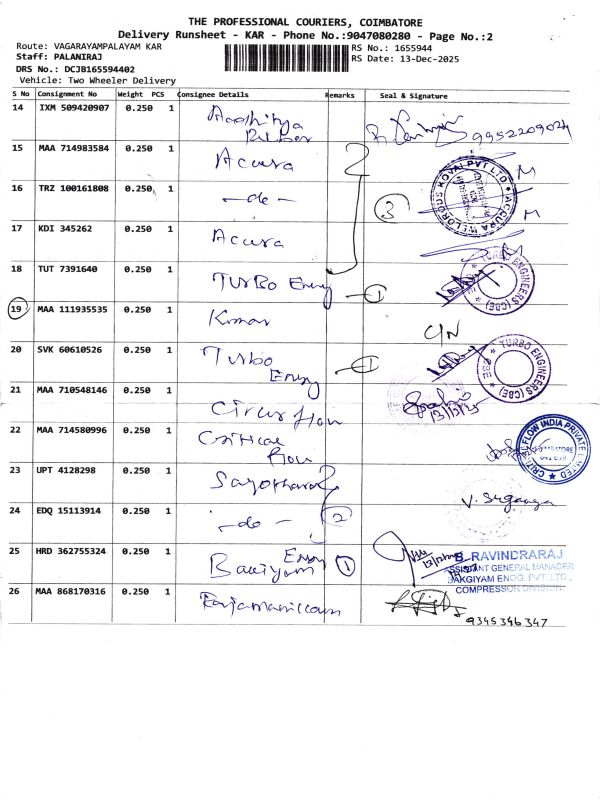 THE PROFESSIONAL COURIERS, COIMBATORE
Delivery Runsheet - KAR - Phone No.:9047080280 - Page No.:2
Route: VAGARAYAMPALAYAM KAR
RS No.: 1655944
Staff: PALANIRAJ
RS Date: 13-Dec-2025
DRS No.: DCJB165594402
Vehicle: Two Wheeler Delivery
S No Consignment No Weight PCS Consignee Details Remarks Seal & Signature
14 IXM 509420907 0.250 1
9952209024
15 MAA 714983584 0.250 1 Accura
16 TRZ 100161808 0.250 1 -do- 3
ACCURA MELOROUS KOVAI PVT LTD
17 KDI 345262 0.250 1 Accura
18 TUT 7391640 0.250 1 Turbo Energy 1
TURBO ENGINEERS (CBE)
19 MAA 111935535 0.250 1 Kumar C/N
20 SVK 60610526 0.250 1 Turbo Energy 1
TURBO ENGINEERS (CBE)
21 MAA 710548146 0.250 1 Circor flow
13/12/25
22 MAA 714580996 0.250 1 Critical flow
CRITICAL FLOW INDIA PRIVATE LIMITED
COIMBATORE
641 659
23 UPT 4128298 0.250 1
24 EDQ 15113914 0.250 1 -do- 2
25 HRD 362755324 0.250 1 1
B. RAVINDRARAJ
ASSISTANT GENERAL MANAGER
BAKGIYAM ENGG. PVT. LTD.,
COMPRESSOR DIVISION
26 MAA 868170316 0.250 1
9345346347